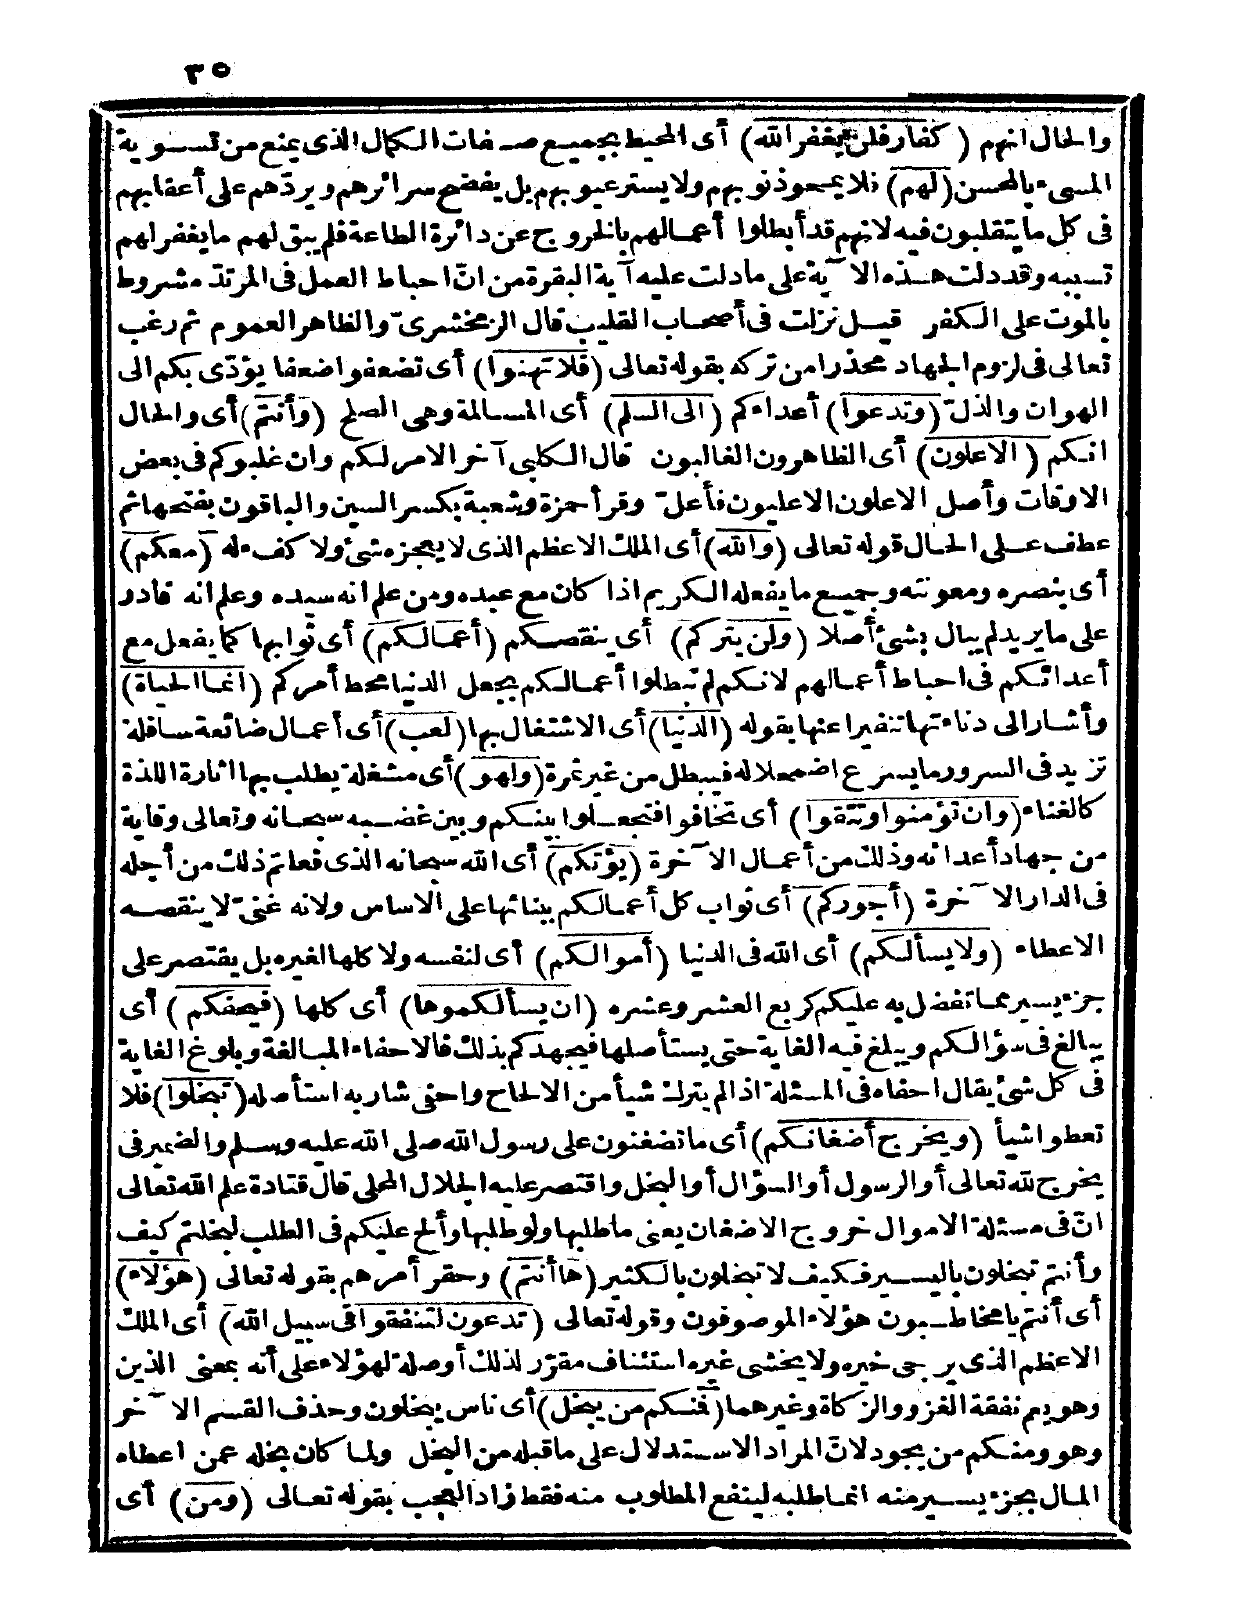 ٣٥
والحال انهم (كفار فلن يغفر الله) أى المحيط بجميع صفات الكمال الذى يمنع من تسوية
المسىء بالمحسن (لهم) فلا يمحو ذنوبهم ولا يستر عيوبهم بل يفضح سرائرهم ويردّهم على أعقابهم
فى كل ما يتقلبون فيه لانهم قد أبطلوا أعمالهم بالخروج عن دائرة الطاعة فلم يبق لهم ما يغفر لهم
تسببه وقد دلت هذه الآية على ما دلت عليه آية البقرة من انّ احباط العمل فى المرتدّ مشروط
بالموت على الكفر قيل نزلت فى أصحاب القليب قال الزمخشرىّ والظاهر العموم ثم رغب
تعالى فى لزوم الجهاد محذرا من تركه بقوله تعالى (فلا تهنوا) أى تضعفوا ضعفا يؤدّى بكم الى
الهوان والذلّ (وتدعوا) أعداءكم (الى السلم) أى المسالمة وهى الصلح (وأنتم) أى والحال
انكم (الاعلون) أى الظاهرون الغالبون قال الكلبى آخر الامر لكم وان غلبوكم فى بعض
الاوقات وأصل الاعلون الاعليون فأعلّ وقرأ حمزة وشعبة بكسر السين والباقون بفتحها ثم
عطف على الحال قوله تعالى (والله) أى الملك الاعظم الذى لا يعجزه شئ ولا كفء له (معكم)
أى بنصره ومعونته وجميع ما يفعله الكريم اذا كان مع عبده ومن علم انه سيده وعلم انه قادر
على ما يريد لم يبال بشئ أصلا (ولن يتركم) أى ينقصكم (أعمالكم) أى ثوابها كما يفعل مع
أعدائكم فى احباط أعمالهم لانكم لم تبطلوا أعمالكم بجعل الدنيا محط أمركم (انما الحياة)
وأشار الى دناءتها تنفيرا عنها بقوله (الدنيا) أى الاشتغال بها (لعب) أى أعمال ضائعة سافلة
تزيد فى السرور ما يسرع اضمحلاله فيبطل من غير ثمرة (ولهو) أى مشغلة يطلب بها اثارة اللذة
كالغناء (وان تؤمنوا وتتقوا) أى تخافوا فتجعلوا بينكم وبين غضبه سبحانه وتعالى وقاية
من جهاد أعدائه وذلك من أعمال الآخرة (يؤتكم) أى الله سبحانه الذى فعلتم ذلك من أجله
فى الدار الآخرة (أجوركم) أى ثواب كل أعمالكم ببنائها على الاساس ولانه غنىّ لا ينقصه
الاعطاء (ولا يسألكم) أى الله فى الدنيا (أموالكم) أى لنفسه ولا كلها لغيره بل يقتصر على
جزء يسير مما تفضل به عليكم كربع العشر وعشره (ان يسألكموها) أى كلها (فيحفكم) أى
يبالغ فى سؤالكم ويبلغ فيه الغاية حتى يستأصلها فيجهدكم بذلك فالاحفاء المبالغة وبلوغ الغاية
فى كل شئ يقال احفاه فى المسئلة اذا لم يترك شيأ من الالحاح واحفى شاربه استأصله (تبخلوا) فلا
تعطوا شيأ (ويخرج أضغانكم) أى ما تضغنون على رسول الله صلى الله عليه وسلم والضمير فى
يخرج لله تعالى أو الرسول أو السؤال أو البخل واقتصر عليه الجلال المحلى قال قتادة علم الله تعالى
انّ فى مسئلة الاموال خروج الاضغان يعنى ما طلبها ولو طلبها وألح عليكم فى الطلب لبخلتم كيف
وأنتم تبخلون باليسير فكيف لا تبخلون بالكثير (ها أنتم) وحقر أمرهم بقوله تعالى (هؤلاء)
أى أنتم يا مخاطبون هؤلاء الموصوفون وقوله تعالى (تدعون لتنفقوا فى سبيل الله) أى الملك
الاعظم الذى يرجى خيره ولا يخشى غيره استئناف مقرّر لذلك أو صلة لهؤلاء على أنه بمعنى الذين
وهو يعم نفقة الغزو والزكاة وغيرهما (فمنكم من يبخل) أى ناس يبخلون وحذف القسم الآخر
وهو ومنكم من يجود لانّ المراد الاستدلال على ما قبله من البخل ولما كان بخله عمن اعطاه
المال بجزء يسير منه انما طلبه لينفع المطلوب منه فقط زاد العجب بقوله تعالى (ومن) أى